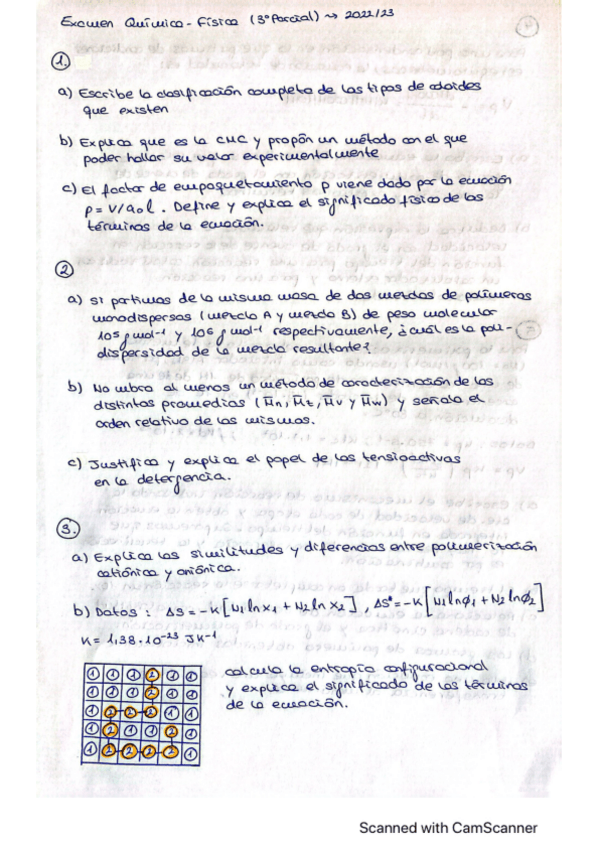 Examen Química-Física (3º Parcial) → 2022/23
1.
a) Escribe la clasificación completa de los tipos de coloides
que existen
b) Explica que es la CMC y propón un método con el que
poder hallar su valor experimentalmente
c) El factor de empaquetamiento p viene dado por la ecuación
p = V/a₀l. Define y explica el significado físico de los
términos de la ecuación.
2
a) Si partimos de la misma masa de dos mezclas de polímeros
monodispersos (mezcla A y mezcla B) de peso molecular
10⁵ g mol⁻¹ y 10⁶ g mol⁻¹ respectivamente, ¿cuál es la poli-
dispersidad de la mezcla resultante?
b) Nombra al menos un método de caracterización de los
distintos promedios (M̄n, M̄z, M̄v y M̄w) y señala el
orden relativo de los mismos.
c) Justifica y explica el papel de los tensioactivos
en la detergencia.
3.
a) Explica las similitudes y diferencias entre polimerización
catiónica y aniónica.
b) Datos: ΔS = -K[N₁lnx₁ + N₂lnx₂], ΔS* = -K[N₁lnφ₁ + N₂lnφ₂]
K = 1,38·10⁻²³ JK⁻¹
1 1 1 2 1 1
1 1 1 2 1 1
1 2 2 2 1 1
1 2 1 1 2 1
1 2 2 2 2 1
calcula la entropía configuracional
y explica el significado de los términos
de la ecuación.
Scanned with CamScanner